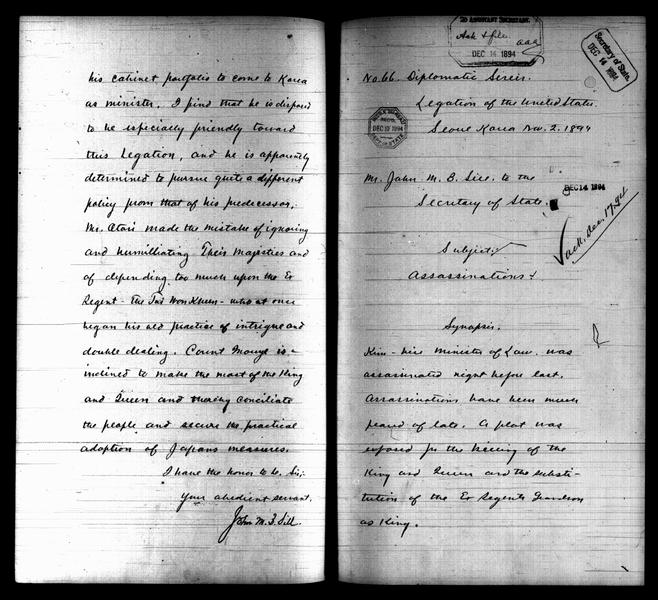 his cabinet portfolio to come to Korea
as minister. I find that he is disposed
to be especially friendly toward
this Legation, and he is apparently
determined to pursue quite a different
policy from that of his predecessor.
Mr. Otori made the mistake of ignoring
and humilliating Their Majesties and
of depending too much upon the Ex
Regent - the Tai Won Khun - who at once
began his old practice of intrigue and
double dealing. Count Inouye is
inclined to make the most of the King
and Queen and thereby conciliate
the people and secure the practical
adoption of Japans measures.
I have the honor to be, Sir,
Your obedient servant,
John M. B. Sill.
2D ASSISTANT SECRETARY.
Ask & file
aaa
DEC 14 1894
Secretary of State,
DEC 14 1894
No. 66. Diplomatic Series.
Legation of the United States.
Seoul Korea Nov. 2. 1894
DEC 13 1894
DEPT. OF STATE
Mr. John M. B. Sill to the
Secretary of State.
DEC 14 1894
ack. Dec. 17. 94
Subject:
Assassinations.
Synopsis.
Kim - vice minister of Law. was
assassinated night before last.
Assassinations have been much
feared of late. A plot was
exposed for the killing of the
King and Queen and the substi-
tution of the Ex Regents Grandson
as King.